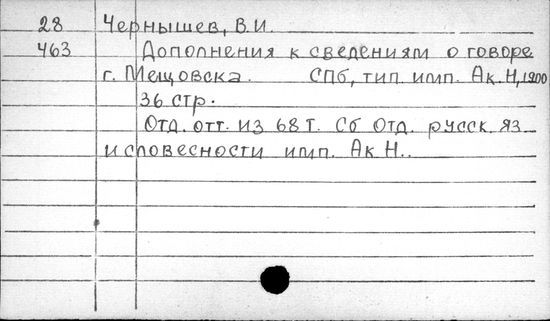 28 Чернышев, В.И.
463 Дополнения к сведениям о говоре
г. Мещовска. СПб, тип. имп. Ак. Н, 1900
36 стр.
Отд. отт. из 68 т. Сб Отд. русск. яз.
и словесности имп. Ак. Н..